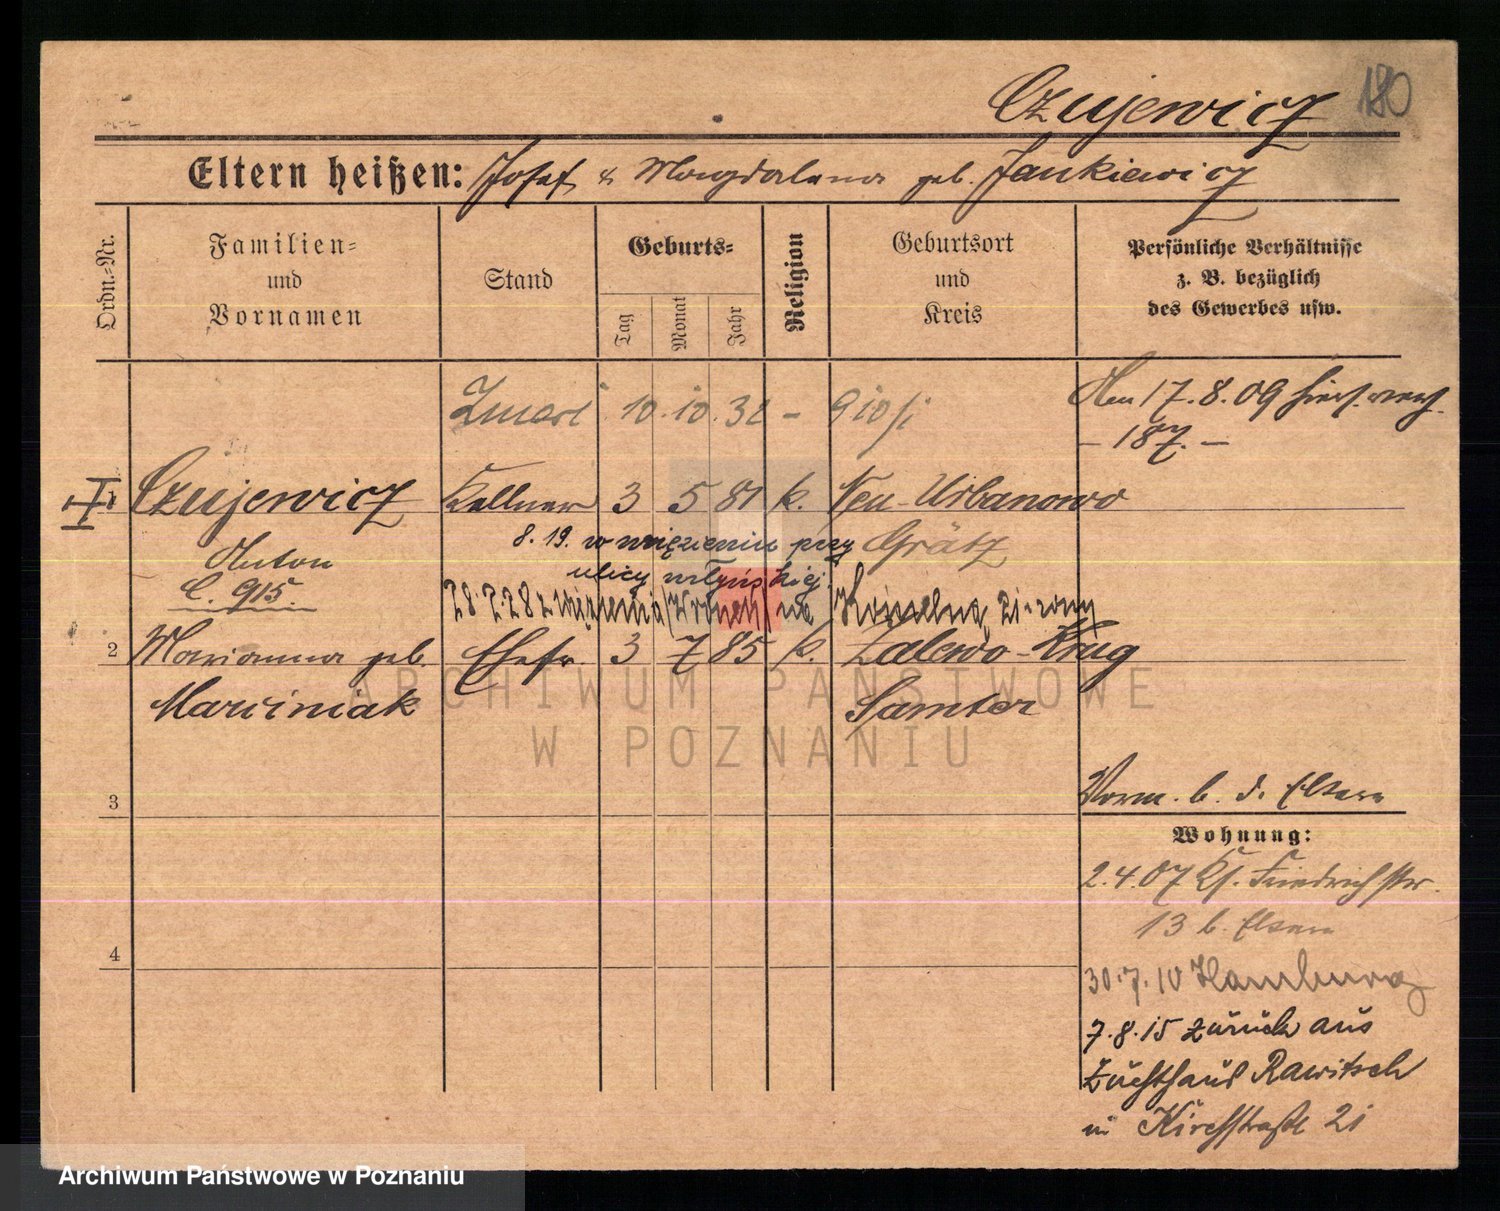 Czujewicz 180
Eltern heißen: Josef & Magdalena geb. Jankiewicz
Ordn.-Nr.
Familien-
und
Vornamen
Stand
Geburts-
Tag
Monat
Jahr
Religion
Geburtsort
und
Kreis
Persönliche Verhältnisse
z. B. bezüglich
des Gewerbes usw.
Zmarł 10. 10. 32 -
17. 8. 09
- 187. -
1 Czujewicz Kellner 3 5 81 k. Neu-Urbanowo
Anton
8. 19. w więzieniu przy Grätz
ulicy młyńskiej
C. 915.
28. 7. 28 z więzienia Wronki na
2 Marianna geb. Ehefr. 3 7 85 k. Zalewo-Krug
Marciniak Samter
3
4
Vorm. b. d. Eltern
Wohnung:
2. 4. 07 Kl. Friedrichstr.
13 b. Eltern
30. 7. 10 Hamburg
7. 8. 15 zurück aus
Zuchthaus Rawitsch
in Kirchstraße 21
ARCHIWUM PAŃSTWOWE
W POZNANIU
Archiwum Państwowe w Poznaniu